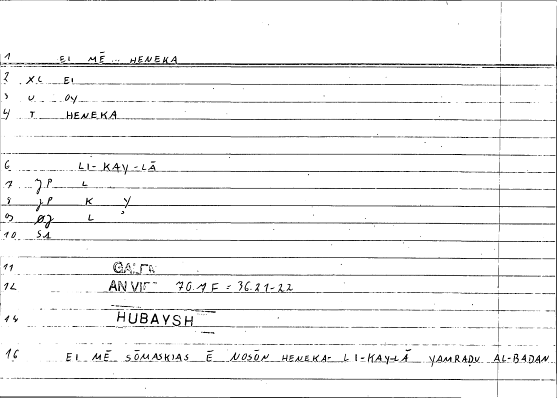 1 EI MĒ ... HENEKA
2 XC EI
3 U OY
4 T HENEKA
6 LI-KAY-LĀ
7 JP L
8 JP K Y
9 ØJ L '
10 SA
11 GAL
12 AN VIE 70.1 F = 36.21-22
14 HUBAYSH
16 EI MĒ SŌMASKIAS Ē NOSŌN HENEKA- LI-KAY-LĀ YAMRAḌU AL-BADAN